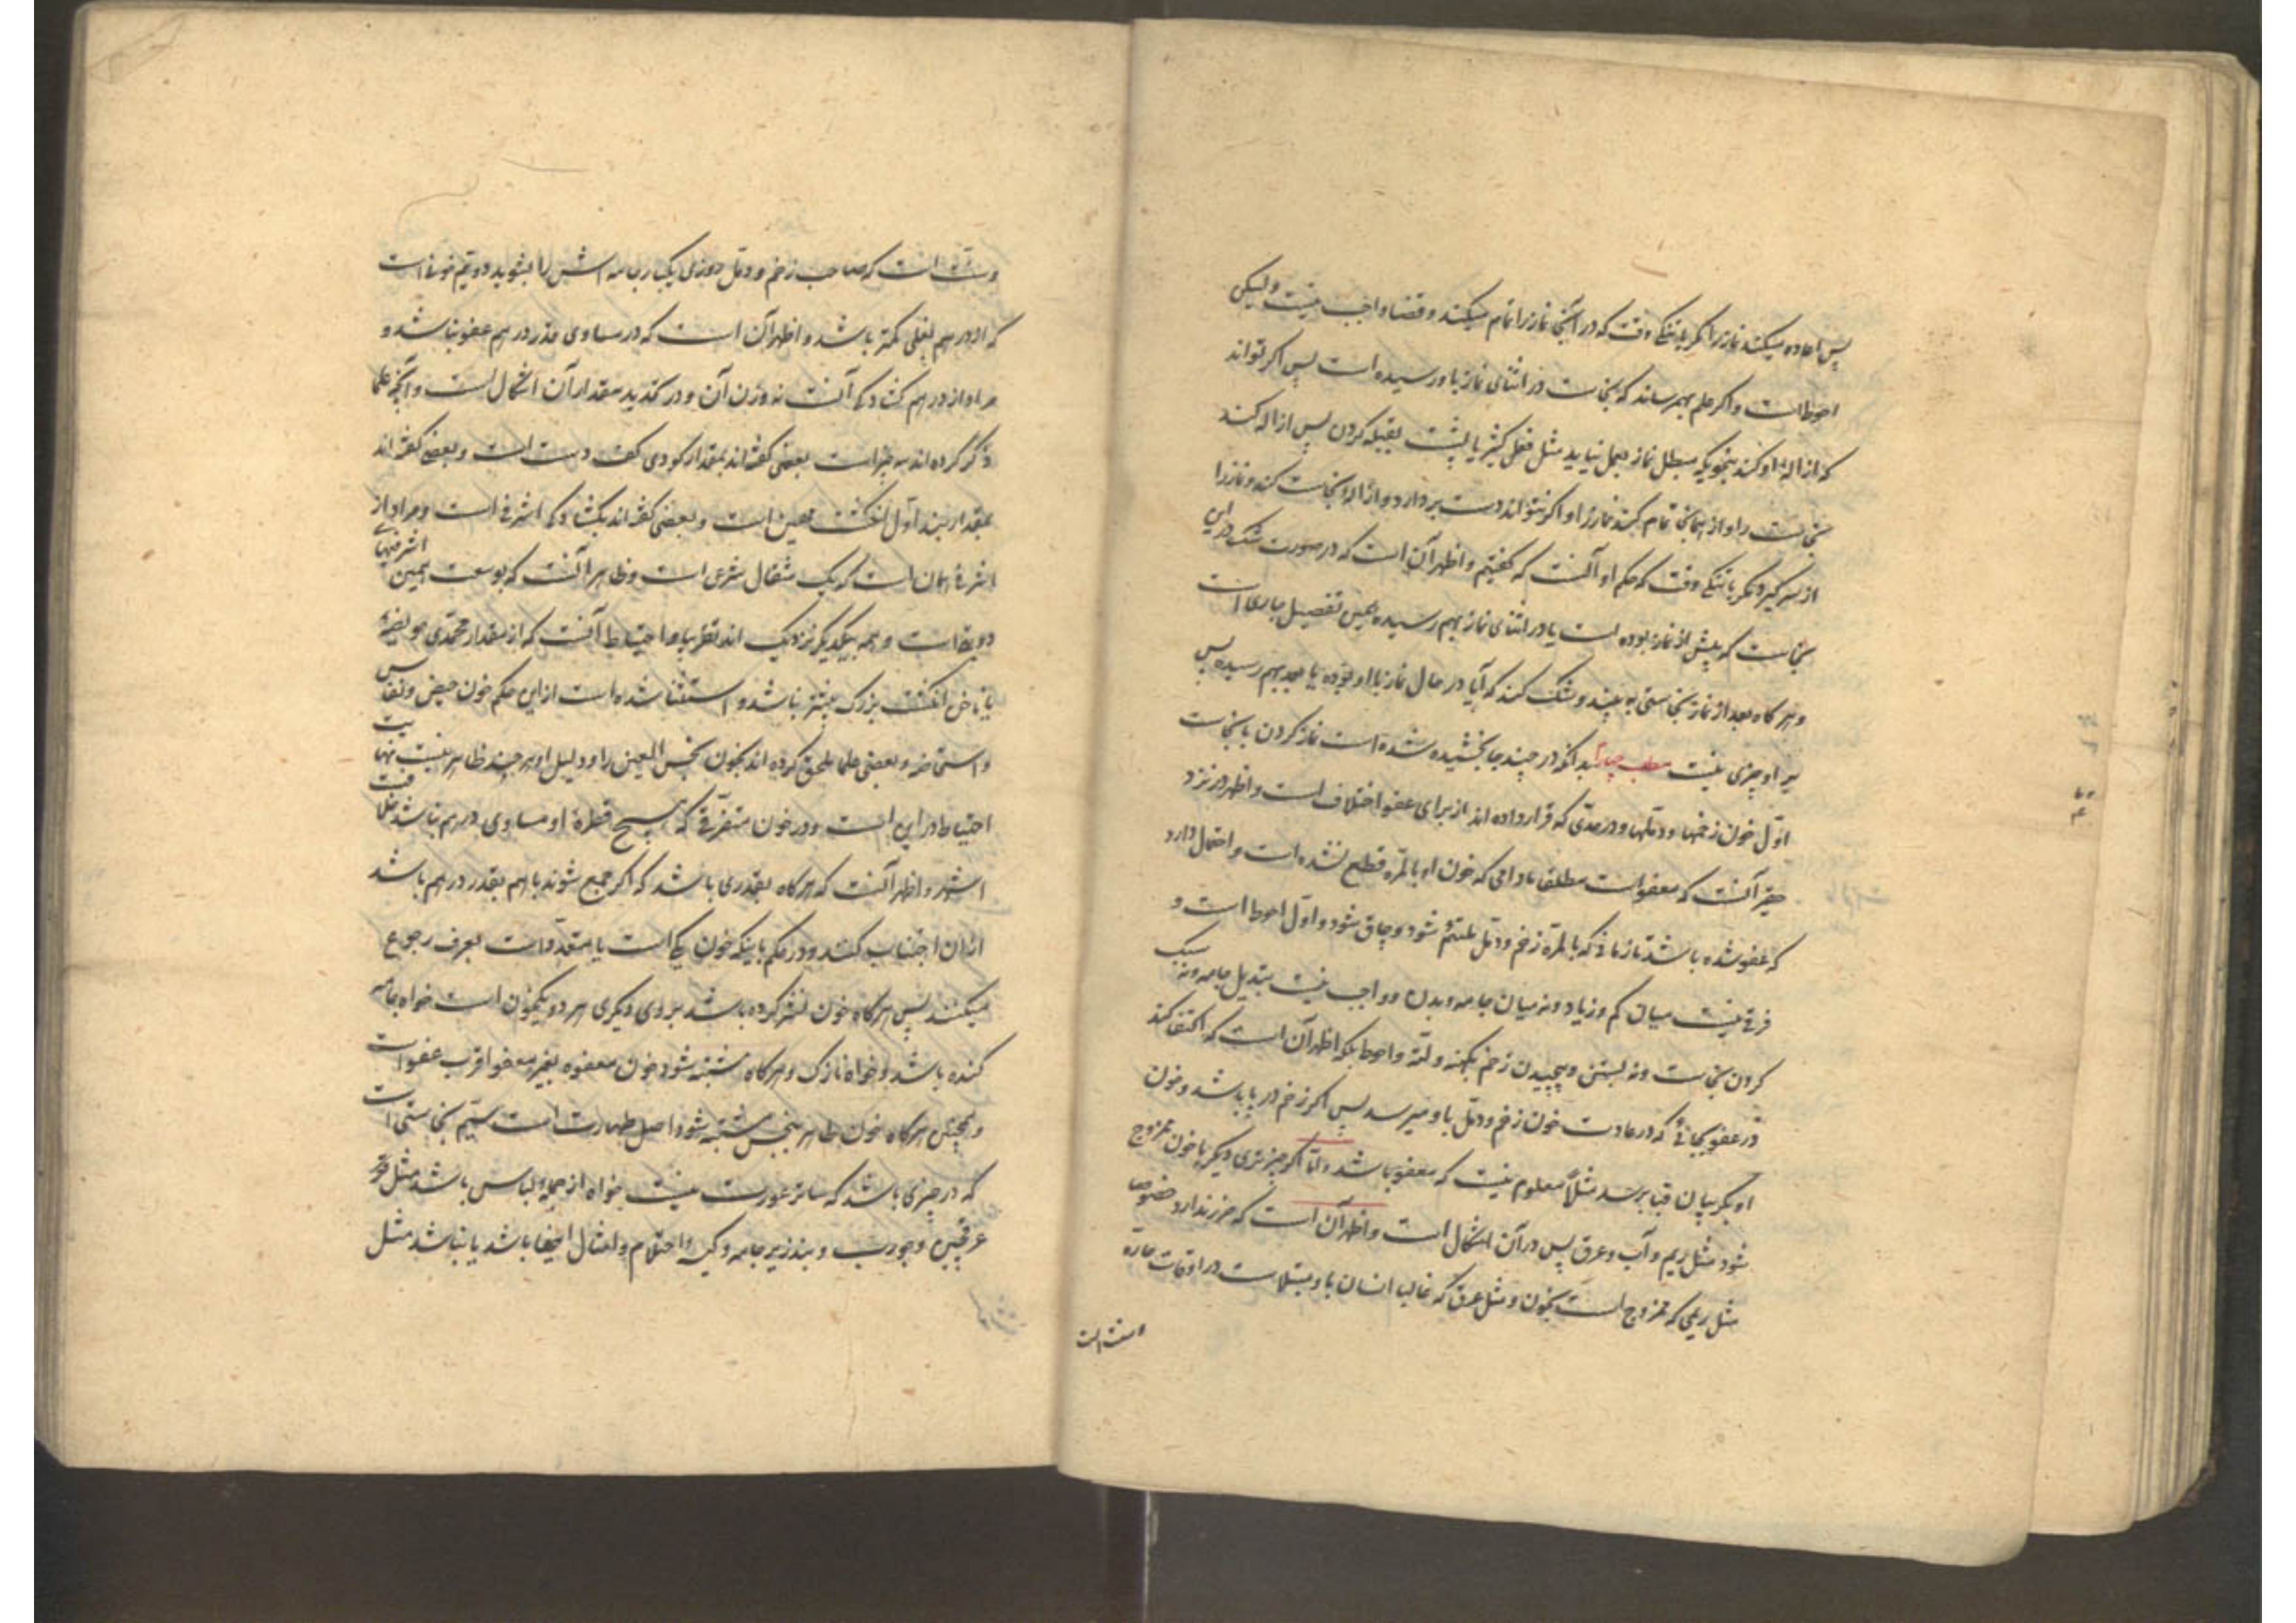 پس اعاده میکند نماز را مگر با تنگی وقت که در آنجا نماز را تمام میکند و قضا واجب نیست ولیکن
احوط است و اگر علم بهمرساند که نجاست در اثنای نماز باو رسیده است پس اگر تواند
که ازاله او کند بنحویکه مبطل نماز بعمل نیاید مثل فعل کثیر یا پشت بقبله کردن پس ازاله کند
نجاست را و از همانجا تمام کند نماز را و اگر نتواند دست بردارد و ازاله نجاست کند و نماز را
از سر گیرد مگر با تنگی وقت که حکم او آنست که گفتیم و اظهر آن است که در صورت شک در این
نجاست که پیش از نماز بوده است یا در اثنای نماز بهم رسیده همین تفصیل جاری است
و هر گاه بعد از نماز نجاستی به بیند و شک کند که آیا در حال نماز با او بوده یا بعد بهم رسیده پس
بر او چیزی نیست مطلب چهارم بدانکه در چند جا بخشیده شده است نماز کردن با نجاست
اوّل خون زخمها و دملها و در مدّتی که قرار داده اند از برای عفو اختلاف است و اظهر در نزد
حقیر آنست که معفو است مطلقا مادامی که خون او بالمرّه قطع نشده است و احتمال دارد
که عفو شده باشد تا زمانی که بالمرّه زخم و دمّل ملتئم شود و چاق شود و اوّل احوط است و
فرقی نیست میان کم و زیاد و نه میان جامه و بدن و واجب نیست تبدیل جامه و نه سبک
کردن نجاست و نه بستن و پیچیدن زخم بکهنه و لتّه و احوط بلکه اظهر آن است که اکتفا کند
در عفو بجائی که در عادت خون زخم و دمّل باو میرسد پس اگر زخم در پا باشد و خون
او بگریبان قبا برسد مثلاً معلوم نیست که معفو باشد و امّا اگر چیز تری دیگر با خون ممزوج
شود مثل ریم و آب و عرق پس در آن اشکال است و اظهر آن است که ضرر ندارد خصوصا
مثل ریمی که ممزوج است بخون و مثل عرق که غالب انسان باو مبتلاست در اوقات حارّه
و سنت است
و سنت است که صاحب زخم و دمل روزی یک بار جامه اش را بشوید دویّم خونی است
که از درهم بغلی کمتر باشد و اظهر آن است که در مساوی قدر درهم عفو نباشد و
مراد از درهم گشادگی آنست نه وزن آن و در تحدید مقدار آن اشکال است و آنچه علما
ذکر کرده اند سه چیز است بعضی گفته اند بمقدار گودی کف دست است و بعضی گفته اند
بمقدار بند اول انگشت مهین است و بعضی گفته اند بگشادگی اشرفی است و مراد از
اشرفی همان است که یک مثقال شرعی است و ظاهرا آنست که بوسعت همین اشرفیهای
دوبتی است و همه بیکدیگر نزدیک اند تقریبا و احتیاط آنست که از مقدار محمّدی
یا ناخن انگشت بزرگ بیشتر نباشد و استثنا شده است از این حکم خون حیض و نفاس
و استحاضه و بعضی علما ملحق کرده اند بخون نجس العین را و دلیل او هر چند ظاهر نیست
احتیاط در این است و در خون متفرّقی که هیچ قطره او مساوی درهم نباشد
اشهر و اظهر آنست که هرگاه بقدری باشد که اگر جمع شوند با هم بقدر درهم باشد
از آن اجتناب کنند و در حکم باینکه خون یکی است یا متعدّد است بعرف رجوع
میکنند پس هرگاه خون نشر کرده باشد بر روی دیگری هر دو یکخون است خواه جامه
کنده باشد و خواه نازک و هرگاه مشتبه شود خون معفوه بغیر معفو اقرب عفو است
و همچنین هرگاه خون طاهر بنجس مشتبه شود اصل طهارت است سیّم نجاستی است
که در چیزی باشد که ساتر عورت نیست خواه از جمله لباس باشد مثل
عرقچین و جورب و بند زیر جامه و و امثال اینها باشد یا نباشد مثل